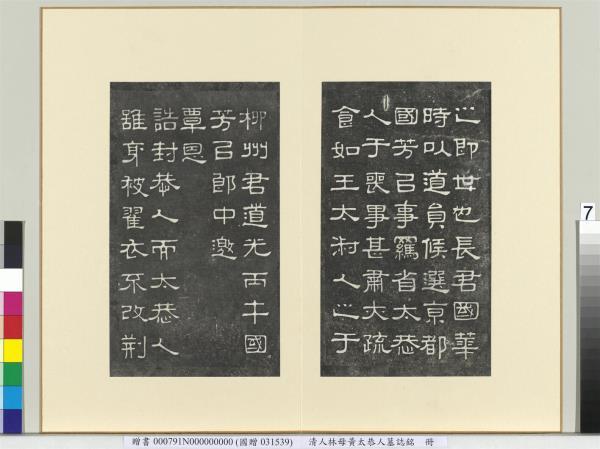 之即世也長君國華
時以道員候選京都
國芳㠯事羈省太恭
人于喪事甚肅大疏
食如王太淑人之于
柳州君道光丙午國
芳㠯郎中邀
覃恩
誥封恭人而太恭人
雖身被翟衣不改荆
7
贈書 000791N000000000 (國贈 031539) 清人林母黃太恭人墓誌銘 冊